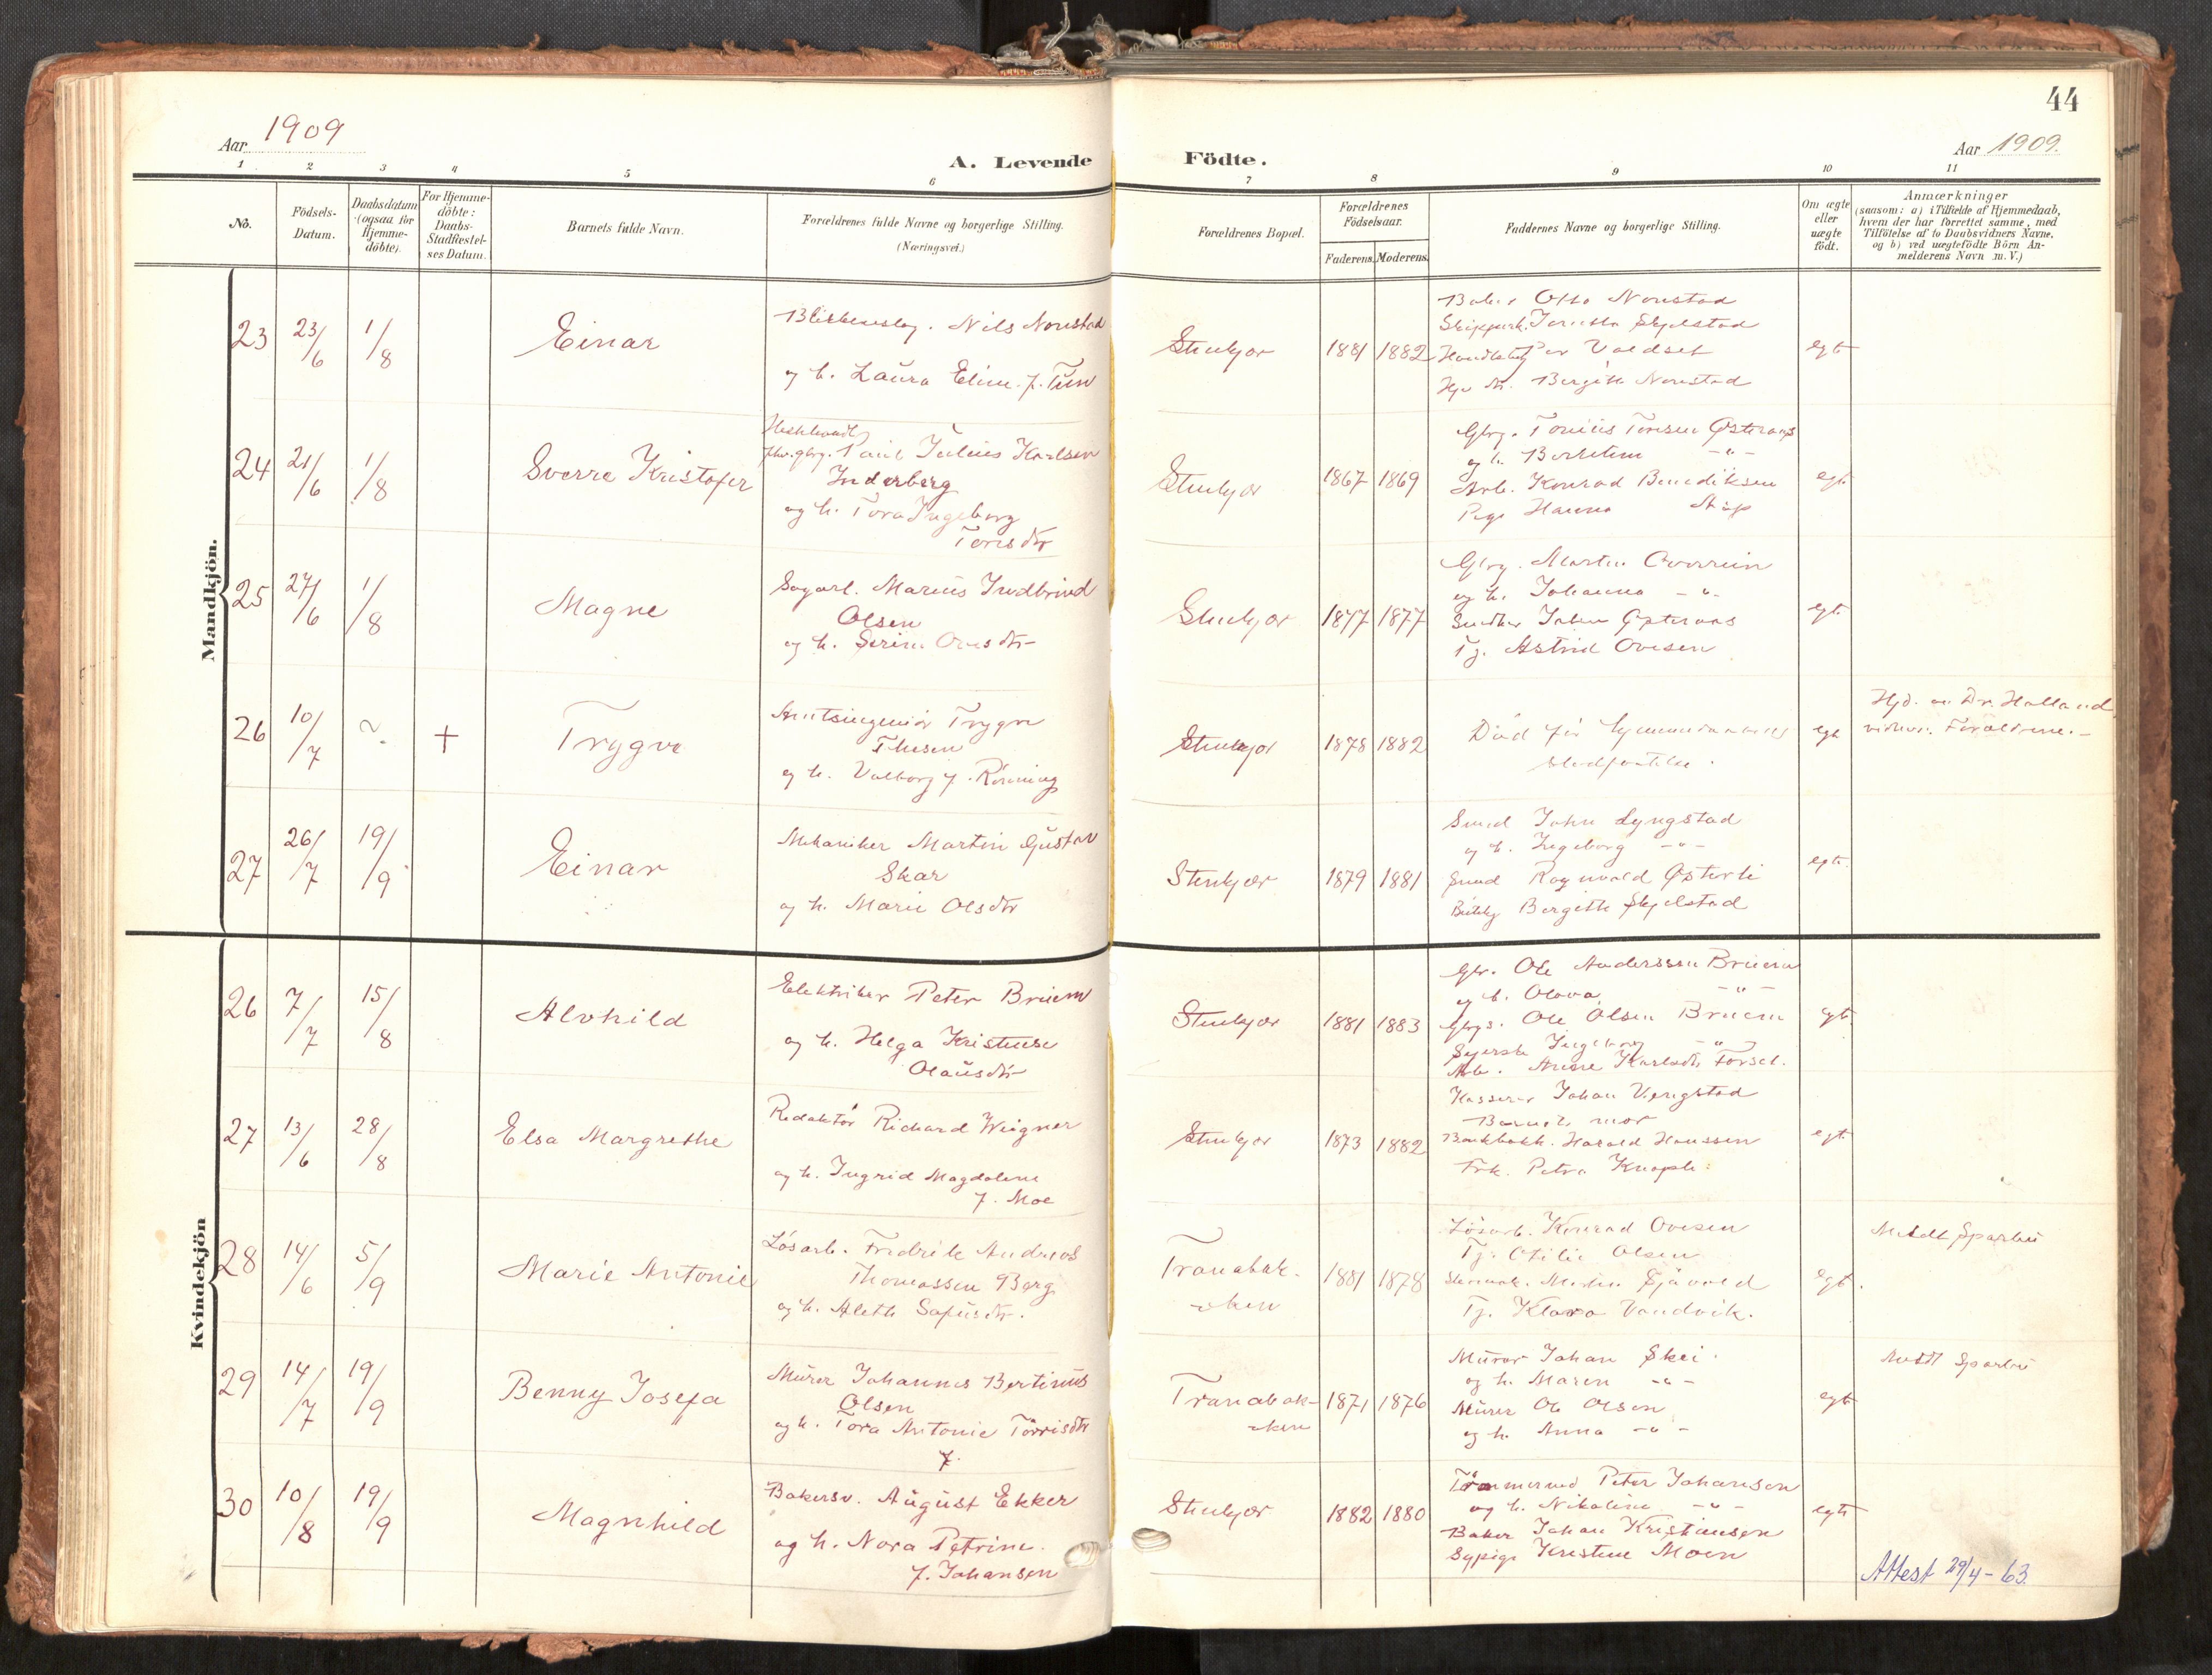 44
Aar 1909
Aar 1909.
A. Levende Födte.
1 2 3 4 5 6 7 8 9 10 11
No.
Födsels-
Datum.
Daabsdatum
(ogsaa for
Hjemme-
döbte).
For Hjemme-
döbte:
Daabs-
Stadfæstel-
ses Datum.
Barnets fulde Navn.
Forældrenes fulde Navne og borgerlige Stilling.
(Næringsvei.)
Forældrenes Bopæl.
Forældrenes
Födselsaar.
Faderens. Moderens.
Faddernes Navne og borgerlige Stilling.
Om ægte
eller
uægte
födt.
Anmærkninger
(saasom: a) i Tilfælde af Hjemmedaab,
hvem der har forrettet samme, med
Tilföielse af to Daabsvidners Navne.
og b) ved uægtefödte Börn An-
melderens Navn m. V.)
Mandkjön.
23 23/6 1/8
Einar
Nils Nonstad
og h. Laura Eline f. Tun
Stenkjær
1881 1882
Otto Nonstad
Skjelstad
Valdset
Bergitte Nonstad
egte
24 21/6 1/8
Sverre Kristofer
Paul Julius Karlsen
Inderberg
og h. Tora Ingeborg
Torisdtr
Stenkjær
1867 1869
Østeraas
og h. -"-
Arb. Konrad Benediksen
Pige Hanna
egt
25 27/6 1/8
Magne
Sagarb. Marius
Olsen
og h. Serine Ovesdtr
Stenkjær
1847 1877
Gbrg. Martin Overrein
og h. Johanna -"-
Johan Østeraas
Tj. Astrid Ovesen
egt
26 10/7 ~ +
Trygve
Amtsingeniør Trygve
Thesen
og h. Valborg f. Rönning
Stenkjær
1878 1882
Död før hjemmedaabens
stadfæstelse.
egt
Hjd. av Dr. Halland
vidner: Forældrene.-
27 26/7 19/9
Einar
Mekaniker Martin Gustav
Skar
og h. Marie Olsdtr
Stenkjær
1879 1881
Smed John Lyngstad
og h. Ingeborg -"-
Smed Ragnvald Østerli
Bergitte Skjelstad
egte
Kvindekjön
26 7/7 15/8
Alvhild
Elektriker Peter Bruem
og h. Helga Kristense
Olausdtr
Stenkjær
1881 1883
Ole Anderssen Bruem
og h. Olava -"-
Ole Olsen Bruem
Syerske Ingeborg -"-
Arb. Arne Karlsdtr Forsel.
egt
27 13/6 28/8
Elsa Margrethe
Redaktör Richard Weigner
og h. Ingrid Magdalene
f. Moe
Stenkjær
1873 1882
Kasserer Johan Vengstad
Barnets mor
Bankbokh. Harald Hanssen
Frk. Petra
egt
28 14/6 5/9
Marie Antonie
Lösarb. Fredrik Andreas
Thomassen Berg
og h. Aleth
Tranabak-
ken
1881 1878
Lösarb. Konrad Ovesen
Tj. Otilie Olsen
Tj. Klara Vandvik.
egt.
Meldt Sparbu
29 14/7 19/9
Benny Josefa
Murer Johannes Bertinus
Olsen
og h. Tora Antonie Torrisdtr
f.
Tranabak-
ken
1871 1876
Murer Johan Skei
og h. Maren -"-
Murer Ole Olsen
og h. Anna -"-
egt
Meldt Sparbu
30 10/8 19/9
Magnhild
Bakersv. August Ekker
og h. Nora Petrine
f. Johansen
Stenkjær
1882 1880
Tömmermd Peter Johansen
og h. Nikoline -"-
Baker Johan Kristiansen
Sypige Kristine Moen
egte
Attest 29/4-63.